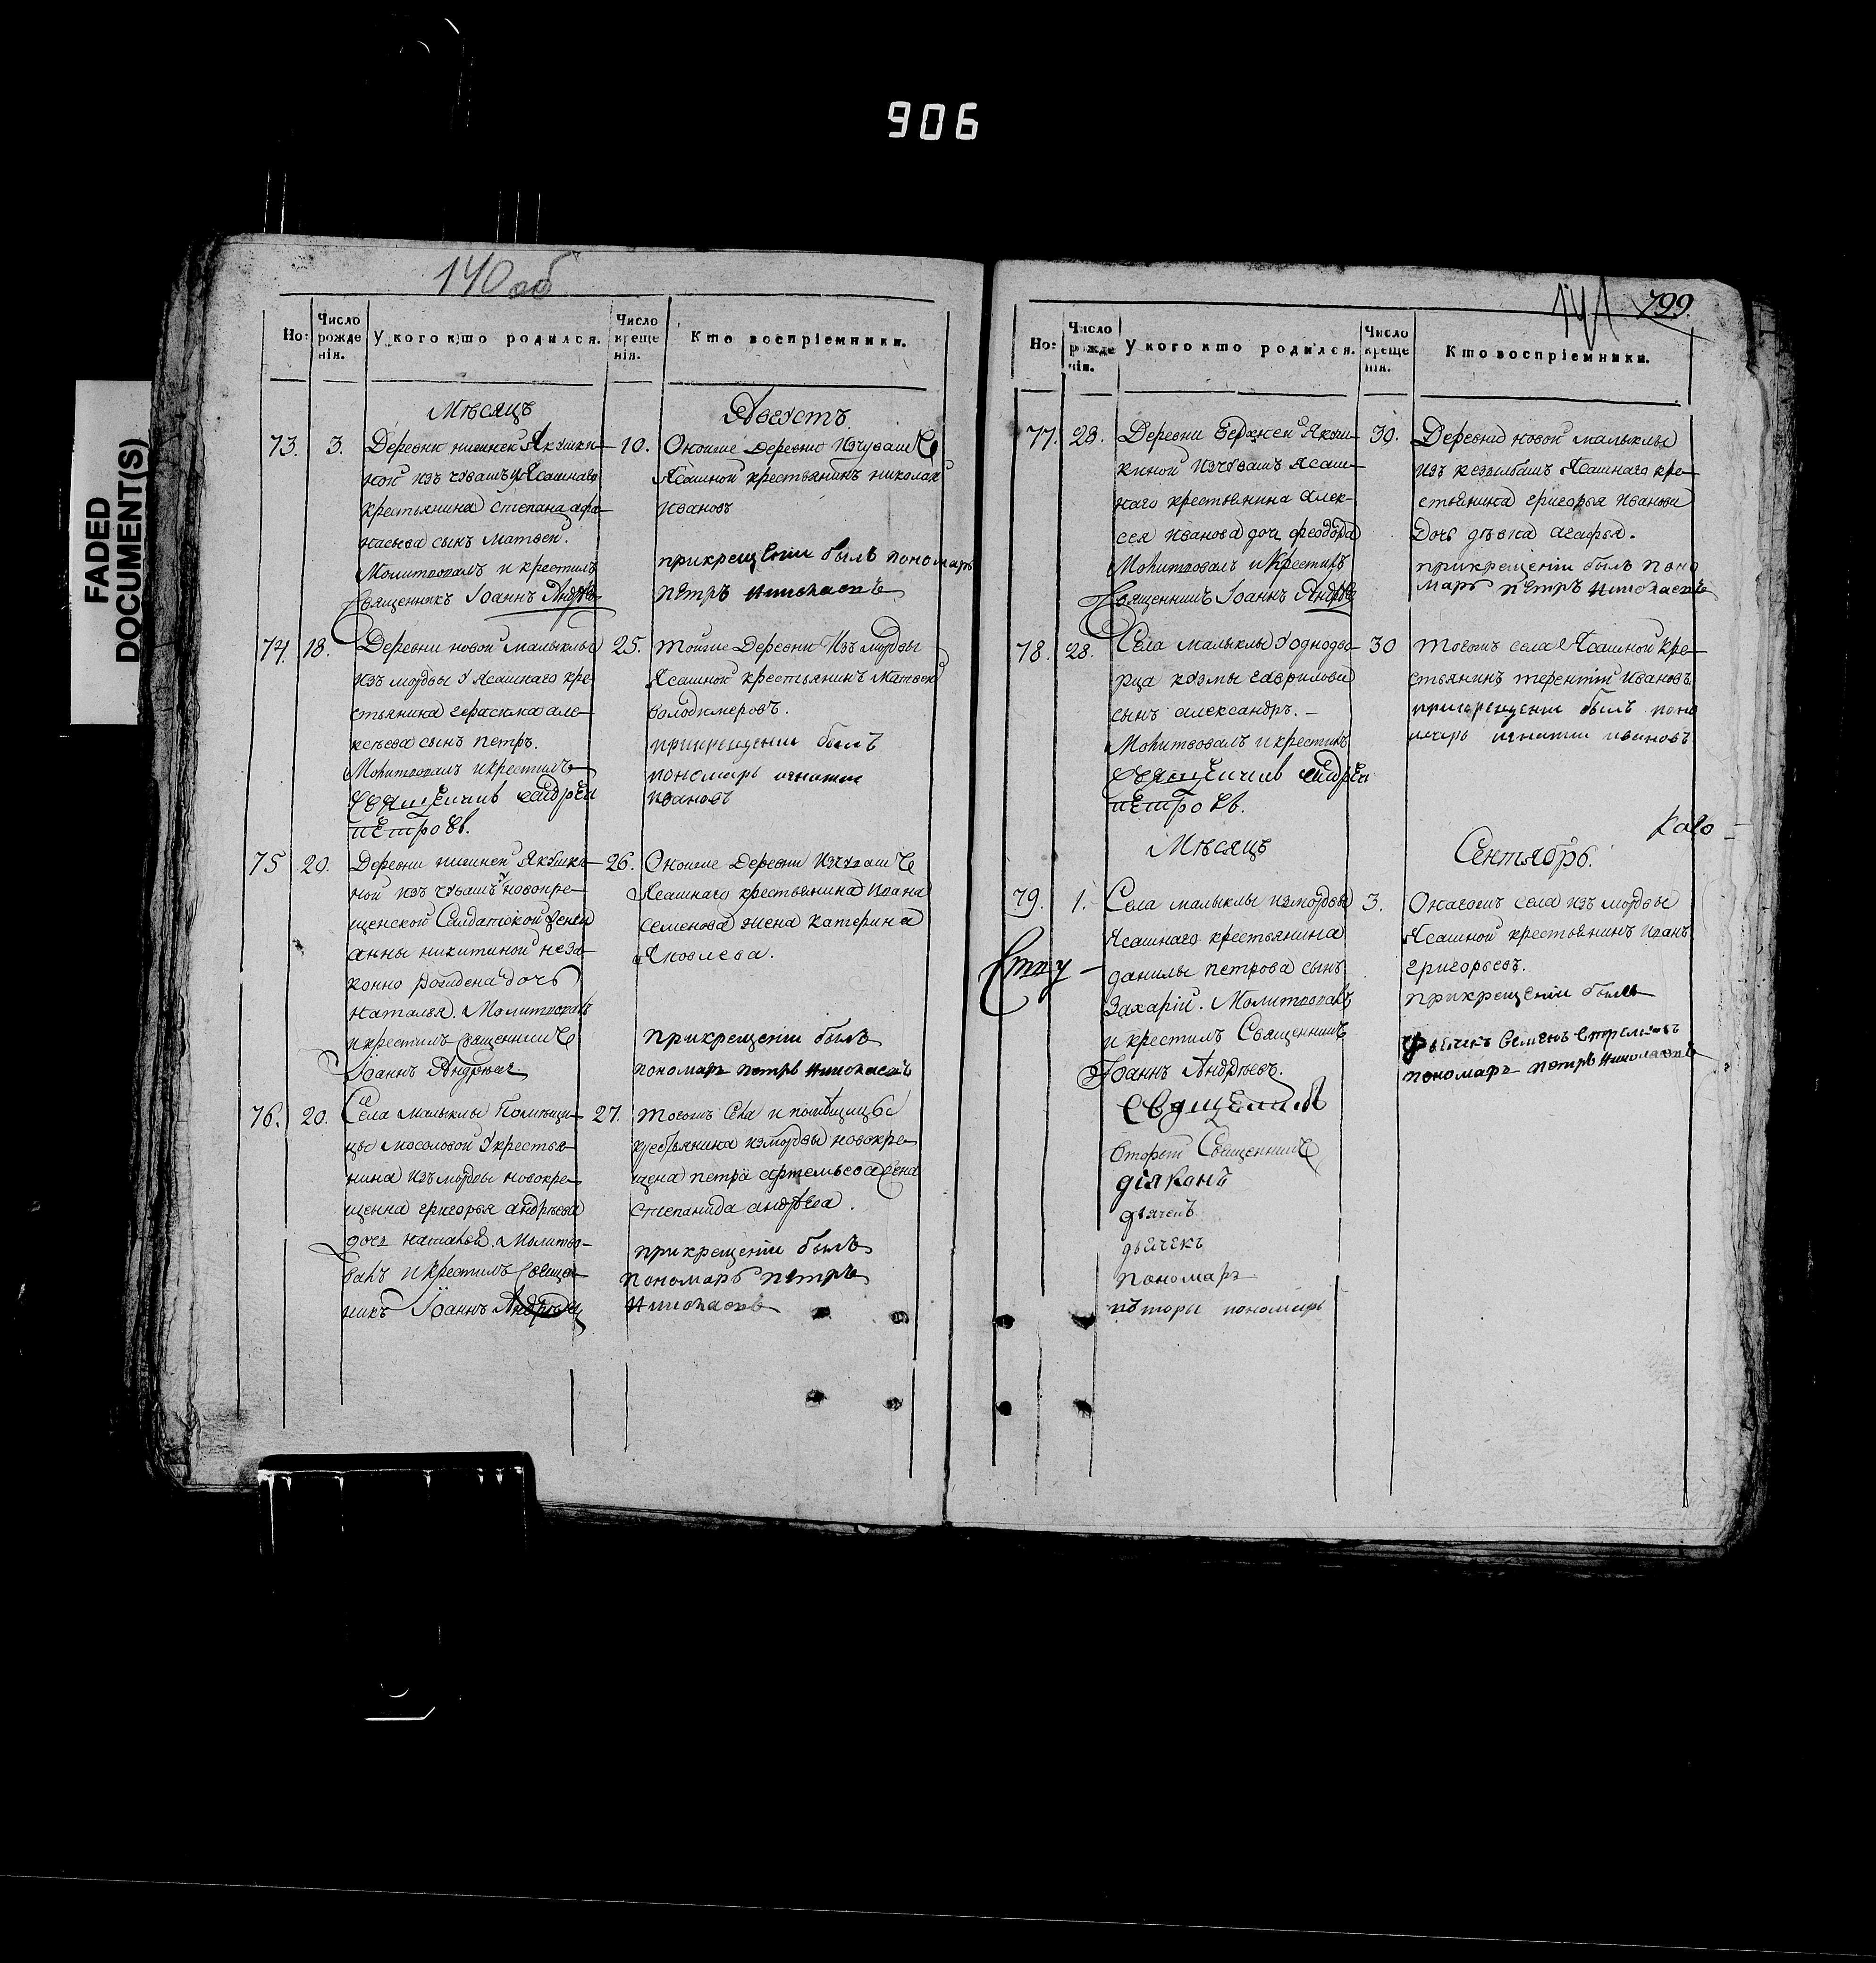 906
FADED
DOCUMENT(S)
140 об
Но:
Число рожденія.
У кого кто родился.
Число крещенія.
Кто воспріемники.
Мѣсяцъ
Августъ.
73.
3.
Деревни нижней Якушки-
ной изъ чувашъ у Ясашнаго
крестьянина степана афа-
насьева сынъ матвей.
Молитвовалъ и крестилъ
Священникъ Іоаннъ Андрѣевъ
10.
Оноиже деревни изъ чувашъ
Ясашной крестьянинъ николай
ивановъ
при крещеніи былъ пономарь
петръ николаевъ
74.
18.
Деревни новой малыклы
изъ мордвы у Ясашнаго кре-
стьянина герасима але-
ксѣева сынъ петръ.
Молитвовалъ и крестилъ
священникъ андрей
петровъ.
25.
тоиже деревни изъ мордвы
Ясашной крестьянинъ матвей
володимеровъ.
при крещении былъ
пономарь игнатии
ивановъ
75
20.
Деревни нижней Якушки-
ной изъ чувашъ у новокре-
щенской солдатской жены
анны никитиной неза-
конно рождена дочь
наталья. Молитвовалъ
и крестилъ священникъ
Іоаннъ Андрѣевъ.
26.
Оноиже деревни изъ чувашъ
Ясашнаго крестьянина ивана
семенова жена катерина
Яковлева.
при крещеніи былъ
пономарь петръ николаевъ
76.
20.
Села малыклы помѣщи-
цы мосоловой у крестья-
нина изъ мордвы новокре-
щенна григорья андрѣева
дочь наталья. Молитво-
валъ и крестилъ священ-
никъ Іоаннъ Андрѣевъ
27.
тогожъ села и помѣщицы
крестьянина изъ мордвы новокре-
щена петра артемьева жена
степанида андрѣева.
при крещеніи былъ
пономарь петръ
николаевъ
141
799.
Но:
Число рожденія.
У кого кто родился.
Число крещенія.
Кто воспріемники.
77.
28.
Деревни верхней Якуш-
киной изъ чувашъ Ясаш-
наго крестьянина алек-
сея иванова дочь феодора
Молитвовалъ и крестилъ
Священникъ Іоаннъ Андрѣевъ
30.
Деревни новой малыклы
изъ кезылбашъ Ясашнаго кре-
стьянина григорья иванова
дочь дѣвка агафья.
при крещеніи былъ поно
марь петръ николаевъ
78.
28.
Села малыклы у однодво-
рца козмы гаврилова
сынъ александръ. -
Молитвовалъ и крестилъ
священникъ андрей
петровъ.
30
тогожъ села Ясашной кре-
стьянинъ терентій ивановъ.
при крещении былъ поно
марь игнатии ивановъ
Мѣсяцъ
Сентябрь.
79.
1.
Села малыклы изъ мордвы
Ясашнаго крестьянина
данилы петрова сынъ
Захарій. Молитвовалъ
и крестилъ Священникъ
Іоаннъ Андрѣевъ.
3.
Онагожъ села изъ мордвы
Ясашной крестьянинъ иванъ
григорьевъ.
при крещеніи были
дьячекъ семенъ
пономарь петръ николаевъ
священникъ
вторый Священникъ
діяконъ
дьячекъ
дьячекъ
пономарь
вторы пономарь